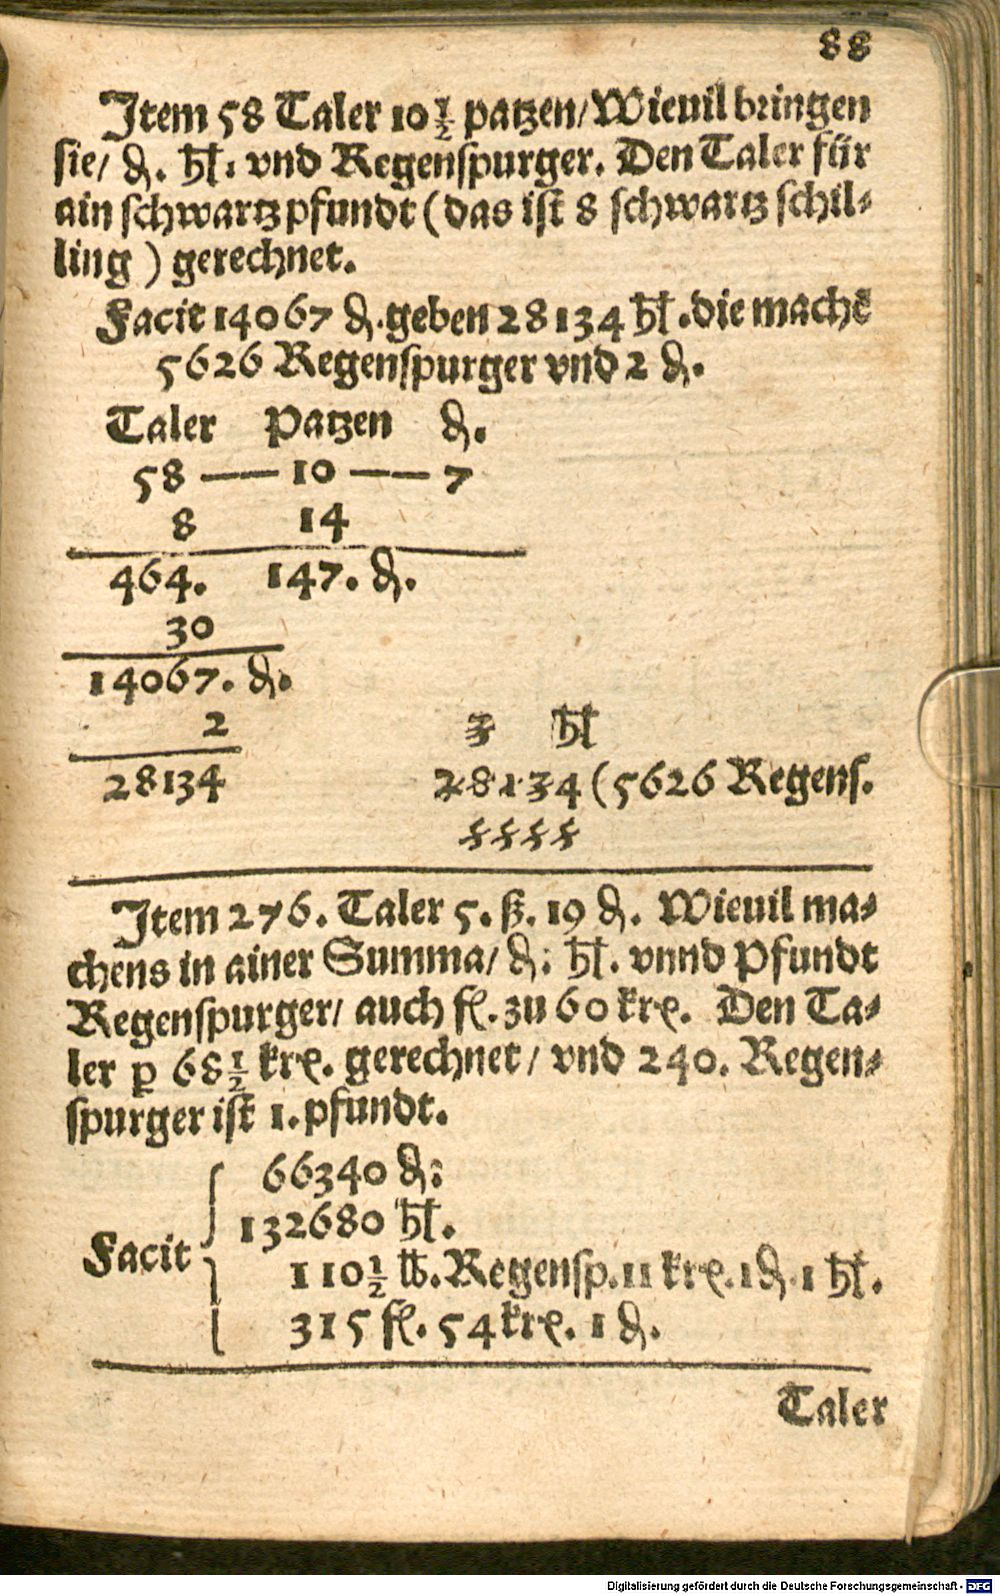 88
Item 58 Taler 10 1/2 patzen/ Wieuil bringen
sie/ ₰. hl: vnd Regenspurger. Den Taler für
ain schwartz pfundt (das ist 8 schwartz schil-
ling ) gerechnet.
Facit 14067 ₰. geben 28134 hl. die machē
5626 Regenspurger vnd 2 ₰.
Taler Patzen ₰.
58 — 10 — 7
8 14
464. 147. ₰.
30
14067. ₰.
2 3 hl
28134 28134 (5626 Regens.
5555
Item 276. Taler 5. ß. 19 ₰. Wieuil ma-
chens in ainer Summa/ ₰: hl. vnnd Pfundt
Regenspurger/ auch fl. zu 60 krę. Den Ta-
ler p 68 1/2 krę. gerechnet/ vnd 240. Regen-
spurger ist 1. pfundt.
66340 ₰:
132680 hl.
Facit 110 1/2 ℔. Regensp. 11 krę. 1 ₰. 1 hl.
315 fl. 54 krę. 1 ₰.
Taler
Digitalisierung gefördert durch die Deutsche Forschungsgemeinschaft - DFG